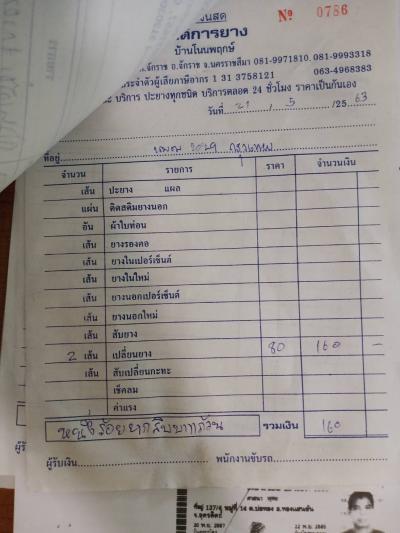 นสด
No 0786
ดีการยาง
บ้านโนนพฤกษ์
.จักราช อ.จักราช จ.นครราชสีมา 081-9971810, 081-9993318
ประจำตัวผู้เสียภาษีอากร 1 31 3758121 063-4968383
บริการ ปะยางทุกชนิด บริการตลอด 24 ชั่วโมง ราคาเป็นกันเอง
วันที่ 21 / 5 /25 63
ที่อยู่ 2029 กรุงเทพ
จำนวน รายการ ราคา จำนวนเงิน
เส้น ปะยาง แผล
แผ่น ติดสติมยางนอก
อัน ผ้าใบท่อน
เส้น ยางรองคอ
เส้น ยางในเปอร์เซ็นต์
เส้น ยางในใหม่
เส้น ยางนอกเปอร์เซ็นต์
เส้น ยางนอกใหม่
เส้น สับยาง
2 เส้น เปลี่ยนยาง 80 160 -
เส้น สับเปลี่ยนกะทะ
เช็คลม
ค่าแรง
หนึ่งร้อยหกสิบบาทถ้วน รวมเงิน 160
ผู้รับเงิน พนักงานขับรถ
ที่อยู่ 137/4 หมู่ที่ 14 ต.บ่อทอง อ.ทองแสนขัน
จ.อุตรดิตถ์